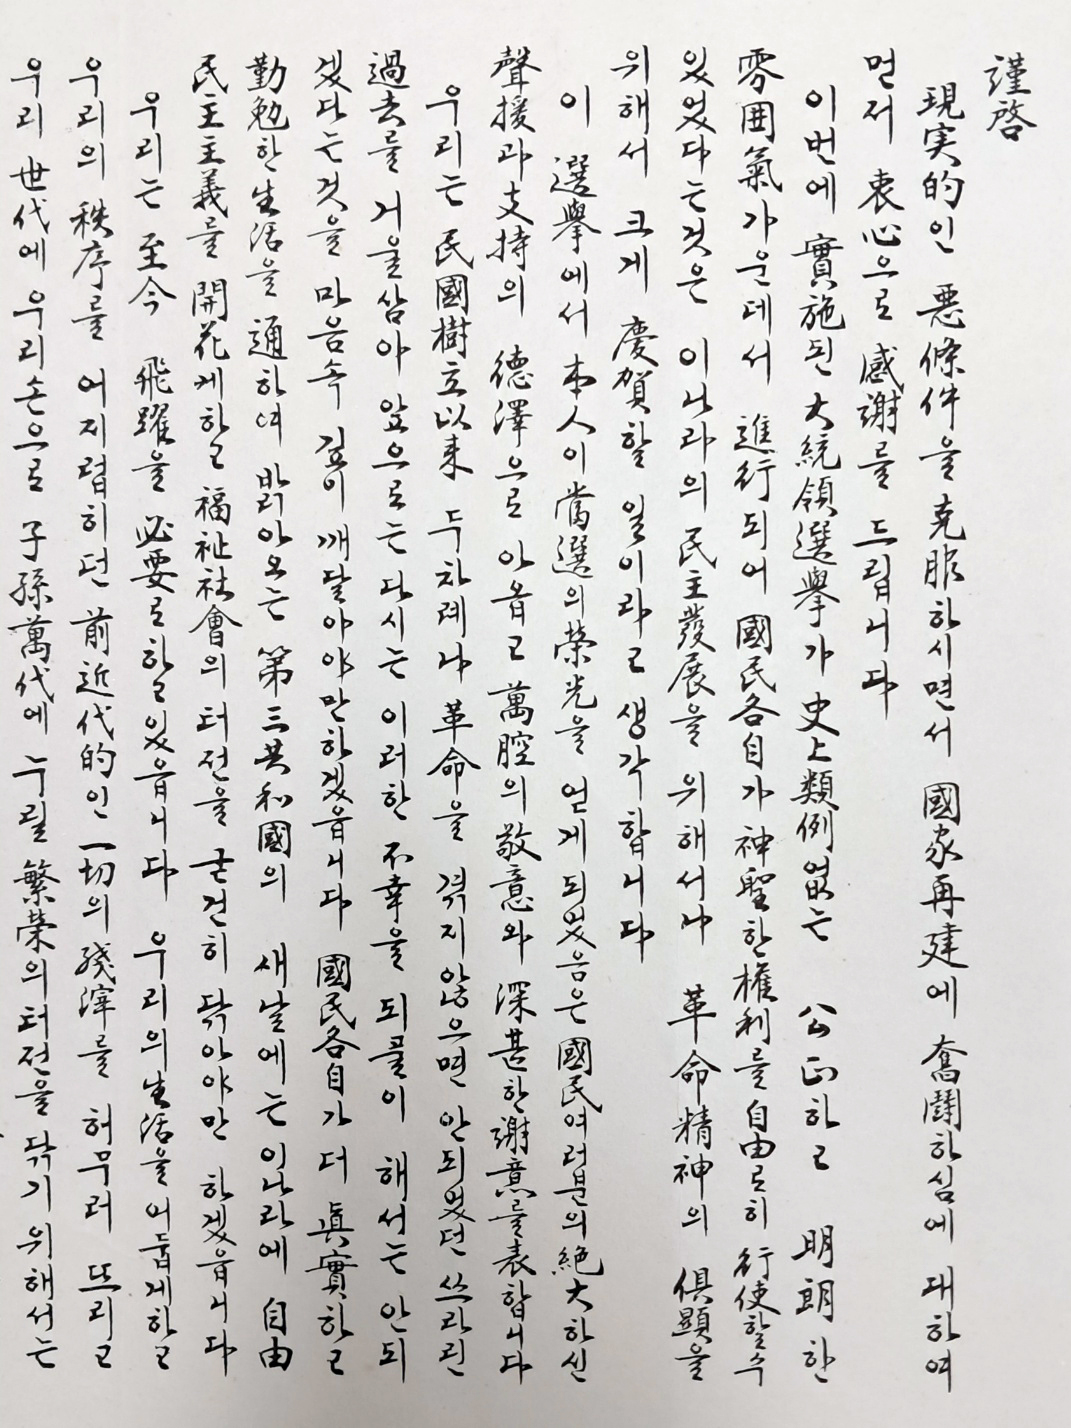 謹啓
現実的인 悪條件을 克服하시면서 國家再建에 奮鬪하심에 대하여
먼저 衷心으로 感謝를 드립니다
이번에 實施된 大統領選擧가 史上類例없는 公正하고 明朗한
雰囲氣가운데서 進行되어 國民各自가 神聖한 權利를 自由로히 行使할수
있었다는것은 이나라의 民主發展을 위해서나 革命精神의 俱顯을
위해서 크게 慶賀할 일이라고 생각합니다
이 選擧에서 本人이 當選의 榮光을 얻게되었음은 國民여러분의 絶大하신
聲援과 支持의 德澤으로 아옵고 萬腔의 敬意와 深甚한 謝意를 表합니다
우리는 民國樹立以来 두차례나 革命을 겪지않으면 안되었던 쓰라린
過去를 거울삼아 앞으로는 다시는 이러한 不幸을 되풀이 해서는 안되
겠다는것을 마음속 깊이 깨달아야만하겠읍니다 國民各自가 더 眞實하고
勤勉한 生活을 通하여 밝아오는 第三共和國의 새날에는 이나라에 自由
民主主義를 開花게하고 福祉社會의 터전을 굳건히 닦아야만 하겠읍니다
우리는 至今 飛躍을 必要로하고있읍니다 우리의 生活을 어둡게하고
우리의 秩序를 어지럽히던 前近代的인 一切의 殘滓를 허무러 뜨리고
우리 世代에 우리손으로 子孫萬代에 누릴 繁榮의 터전을 닦기 위해서는